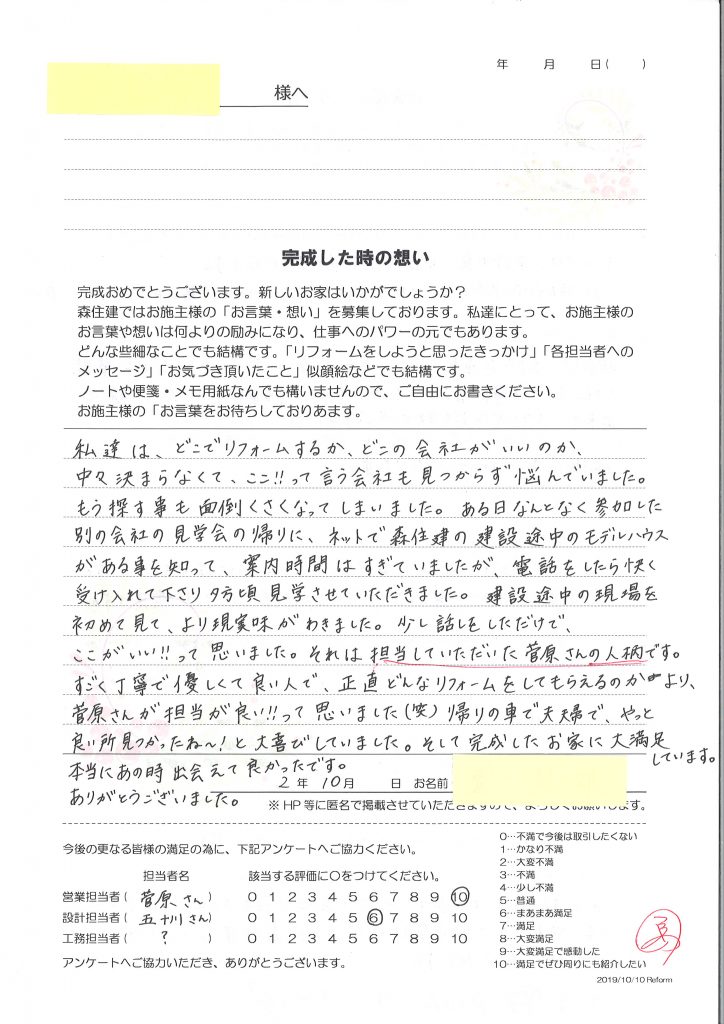 年　　月　　日(　　)
様へ
完成した時の想い
完成おめでとうございます。新しいお家はいかがでしょうか？
森住建ではお施主様の「お言葉・想い」を募集しております。私達にとって、お施主様の
お言葉や想いは何よりの励みになり、仕事へのパワーの元でもあります。
どんな些細なことでも結構です。「リフォームをしようと思ったきっかけ」「各担当者への
メッセージ」「お気づき頂いたこと」似顔絵などでも結構です。
ノートや便箋・メモ用紙なんでも構いませんので、ご自由にお書きください。
お施主様の「お言葉をお待ちしておりあます。
私達は、どこでリフォームするか、どこの会社がいいのか、
中々決まらなくて、ここ!!って言う会社も見つからず悩んでいました。
もう探す事も面倒くさくなってしまいました。ある日なんとなく参加した
別の会社の見学会の帰りに、ネットで森住建の建設途中のモデルハウス
がある事を知って、案内時間はすぎていましたが、電話をしたら快く
受け入れて下さり夕方頃見学させていただきました。建設途中の現場を
初めて見て、より現実味がわきました。少し話しをしただけで、
ここがいい!!って思いました。それは担当していただいた菅原さんの人柄です。
すごく丁寧で優しくて良い人で、正直どんなリフォームをしてもらえるのかより、
菅原さんが担当が良い!!って思いました(笑)帰りの車で夫婦で、やっと
良い所見つかったね〜!と大喜びしていました。そして完成したお家に大満足
しています。
本当にあの時出会えて良かったです。
2年10月　　日　お名前
ありがとうございました。
※HP等に匿名で掲載させていただきますので、よろしくお願いします。
今後の更なる皆様の満足の為に、下記アンケートへご協力ください。
担当者名　　該当する評価に〇をつけてください。
営業担当者(菅原さん) 0 1 2 3 4 5 6 7 8 9 10
設計担当者(五十川さん) 0 1 2 3 4 5 6 7 8 9 10
工務担当者(？) 0 1 2 3 4 5 6 7 8 9 10
アンケートへご協力いただき、ありがとうございます。
0…不満で今後は取引したくない
1…かなり不満
2…大変不満
3…不満
4…少し不満
5…普通
6…まあまあ満足
7…満足
8…大変満足
9…大変満足で感動した
10…満足でぜひ周りにも紹介したい
2019/10/10 Reform